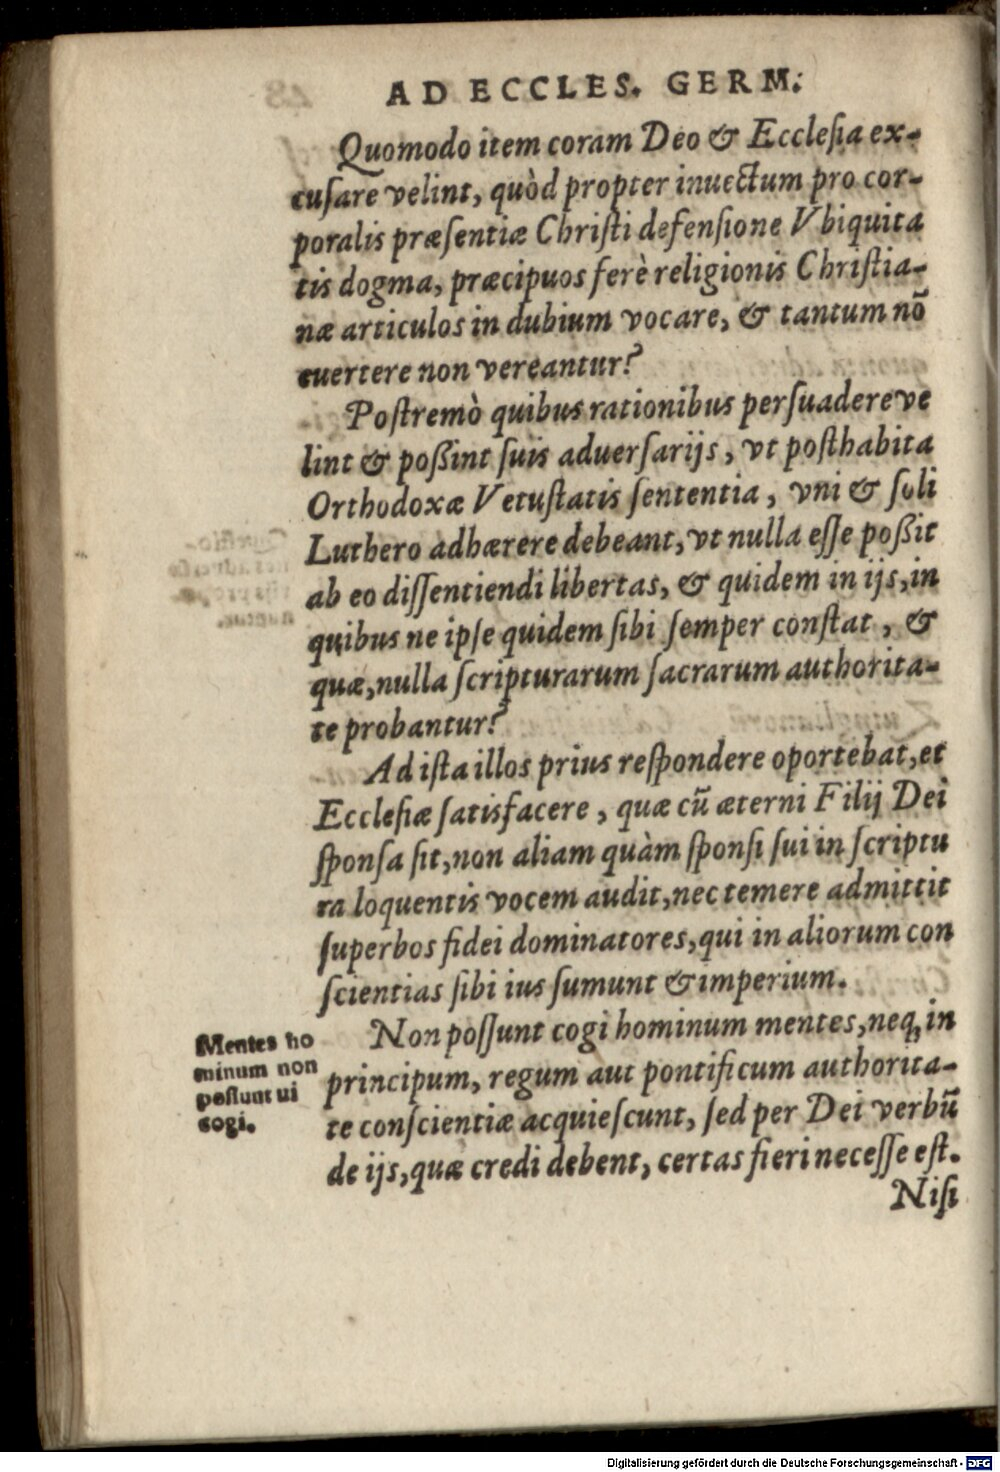 AD ECCLES. GERM.
Quomodo item coram Deo & Ecclesia ex-
cusare velint, quòd propter inuectum pro cor-
poralis præsentiæ Christi defensione Vbiquita
tis dogma, præcipuos ferè religionis Christia-
næ articulos in dubium vocare, & tantum nō
euertere non vereantur?
Postremò quibus rationibus persuadere ve
lint & poßint suis aduersarijs, vt posthabita
Orthodoxæ Vetustatis sententia, vni & soli
Luthero adhærere debeant, vt nulla esse poßit
ab eo dissentiendi libertas, & quidem in ijs, in
quibus ne ipse quidem sibi semper constat, &
quæ, nulla scripturarum sacrarum authorita-
te probantur?
Ad ista illos prius respondere oportebat, et
Ecclesiæ satisfacere, quæ cū æterni Filij Dei
sponsa sit, non aliam quàm sponsi sui in scriptu
ra loquentis vocem audit, nec temere admittit
superbos fidei dominatores, qui in aliorum con
scientias sibi ius sumunt & imperium.
Non possunt cogi hominum mentes, neq₃ in
principum, regum aut pontificum authorita-
te conscientiæ acquiescunt, sed per Dei verbū
de ijs, quæ credi debent, certas fieri necesse est.
Nisi
Mentes ho
minum non
possunt ui
cogi.
Digitalisierung gefördert durch die Deutsche Forschungsgemeinschaft - DFG